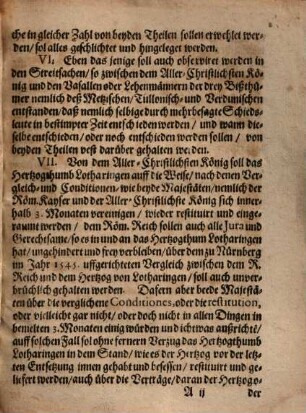 che in gleicher Zahl von beyden Theilen sollen erwehlet wer-
den/ sol alles geschlichtet und hingeleget werden.
VI. Eben das jenige soll auch observiret werden in
den Streitsachen/ so zwischen dem Aller-Christlichsten Kö-
nig und den Vasallen oder Lehenmännern der drey Bißthü-
mer nemlich deß Metzischen/ Tullonisch- und Verdunischen
entstanden/ daß nemlich selbige durch mehrbesagte Schieds-
leute in bestimpter Zeit entschieden werden/ und wann die-
selbe entschieden/ oder noch entschieden werden sollen/ von
beyden Theilen vest darüber gehalten werden.
VII. Von dem Aller-Christlichsten König soll das
Hertzogthumb Lotharingen auff die Weise/ nach denen Ver-
gleich- und Conditionen/ wie beyde Majestäten/ nemlich der
Röm. Kayser und der Aller-Christlichste König sich inner-
halb 3. Monaten vereinigen/ wieder restituirt und einge-
raumet werden/ dem Röm. Reich sollen auch alle Jura und
Gerechsame/ so es in und an das Hertzogthum Lotharingen
hat/ ungehindert und frey verbleiben/ über dem zu Nürnberg
im Jahr 1543. uffgerichteten Vergleich zwischen dem R.
Reich und dem Hertzog von Lotharingen/ soll auch unver-
brüchlich gehalten werden. Dafern aber beede Majestä-
ten über die verglichene Conditiones, oder die restitution,
oder vielleicht gar nicht/ oder doch nicht in allen Dingen in
bemelten 3. Monaten einig würden und ichtwas außrichte/
auff solchen Fall sol ohne fernern Verzug das Hertzogthumb
Lotharingen in dem Stand/ wie es der Hertzog vor der letz-
ten Entsetzung innen gehabt und besessen/ restituirt und ge-
liefert werden/ auch über die Verträge/ daran der Hertzogs-
A ij der